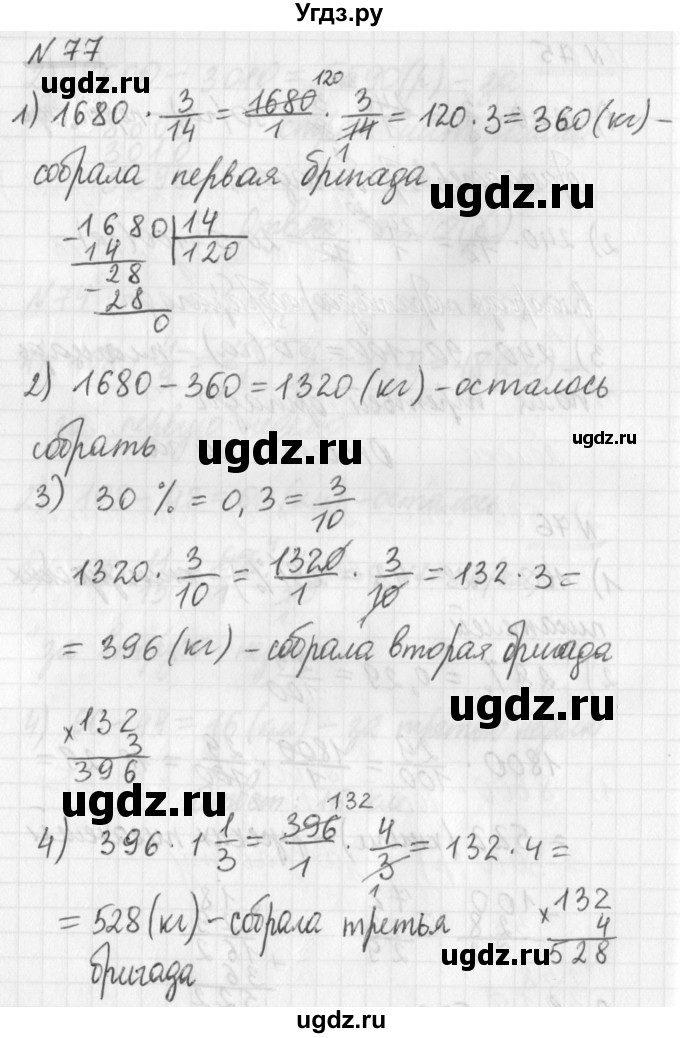 Угдз.ру
№ 77
ugdz.ru
1) 1680 · 3/14 = 1680/1 · 3/14 = 120 · 3 = 360 (кг) –
120
1
собрала первая бригада
ugdz.ru
ugdz.ru
- 1680 | 14
14 | 120
28
- 28
0
2) 1680 – 360 = 1320 (кг) – осталось
собрать
ugdz.ru
ugdz.ru
3) 30 % = 0,3 = 3/10
1320 · 3/10 = 1320/1 · 3/10 = 132 · 3 =
= 396 (кг) – собрала вторая бригада
ugdz.ru
× 132
3
396
ugdz.ru
132
4) 396 · 1 1/3 = 396/1 · 4/3 = 132 · 4 =
ugdz.ru
1
= 528 (кг) – собрала третья
бригада
× 132
4
528
ugdz.ru
ugdz.ru
ugdz.ru